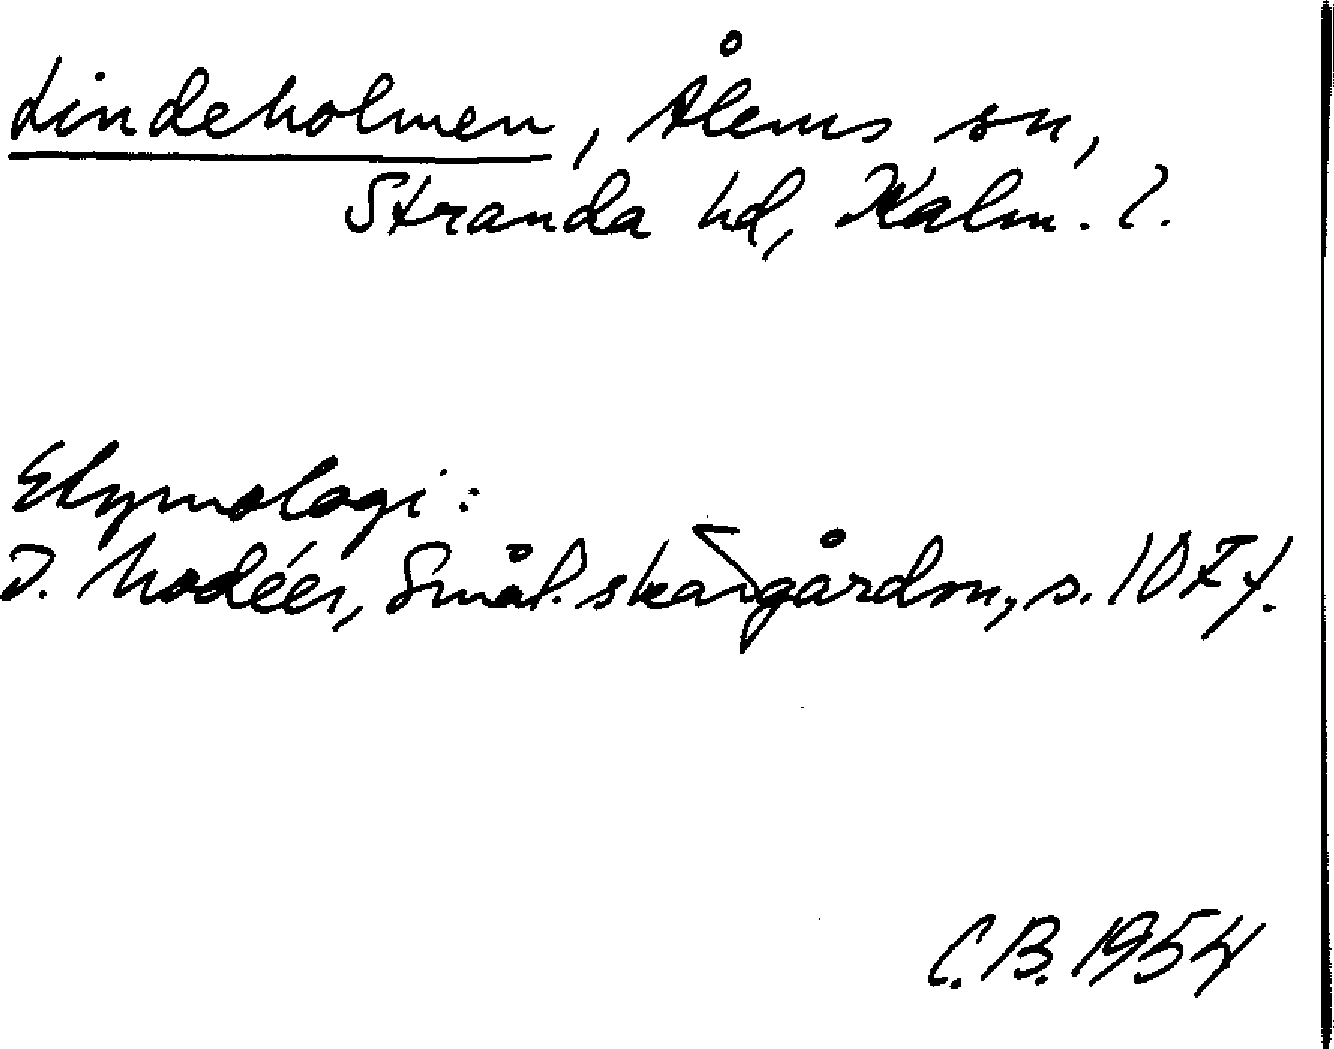 Lindeholmen, Ålems sn,
Stranda hd, Kalm. l.
Etymologi:
I. Modéer, Smål. skärgårdsn., s. 107 f.
C.B. 1954